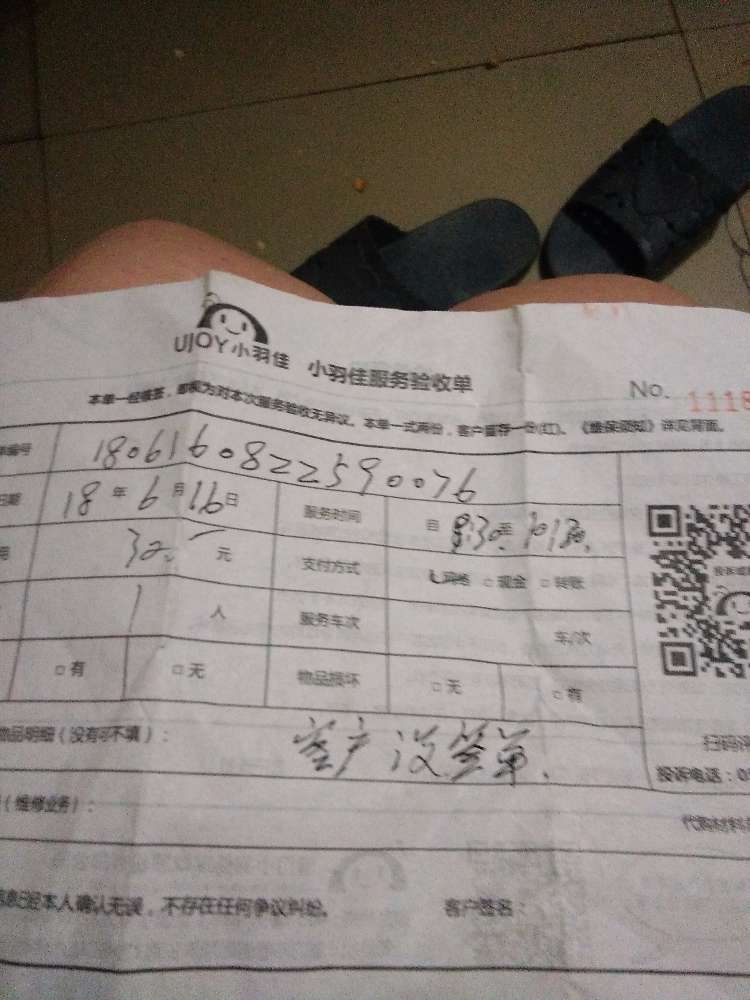 UJOY小羽佳 小羽佳服务验收单
No. 1118
本单一经核签，即视为对本次服务验收无异议。本单一式两份，客户留存一份(红)。《维保须知》详见背面。
编号 1806160822590076
日期 18 年 6 月 16 日 服务时间 自 8:30 至 10:30.
用 320 元 支付方式 网络 □ 现金 □ 转账
1 人 服务车次 车/次
□ 有 □ 无 物品损坏 □ 无 □ 有
物品明细（没有可不填）： 客户没签单.
扫码
投诉电话：0
（维修业务）：
代购材料
本人确认无误，不存在任何争议纠纷。 客户签名：